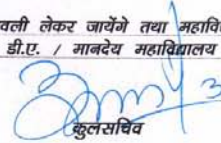 वली लेकर जायेंगे तथा महावि
डी.ए. / मानदेय महाविद्यालय
कुलसचिव